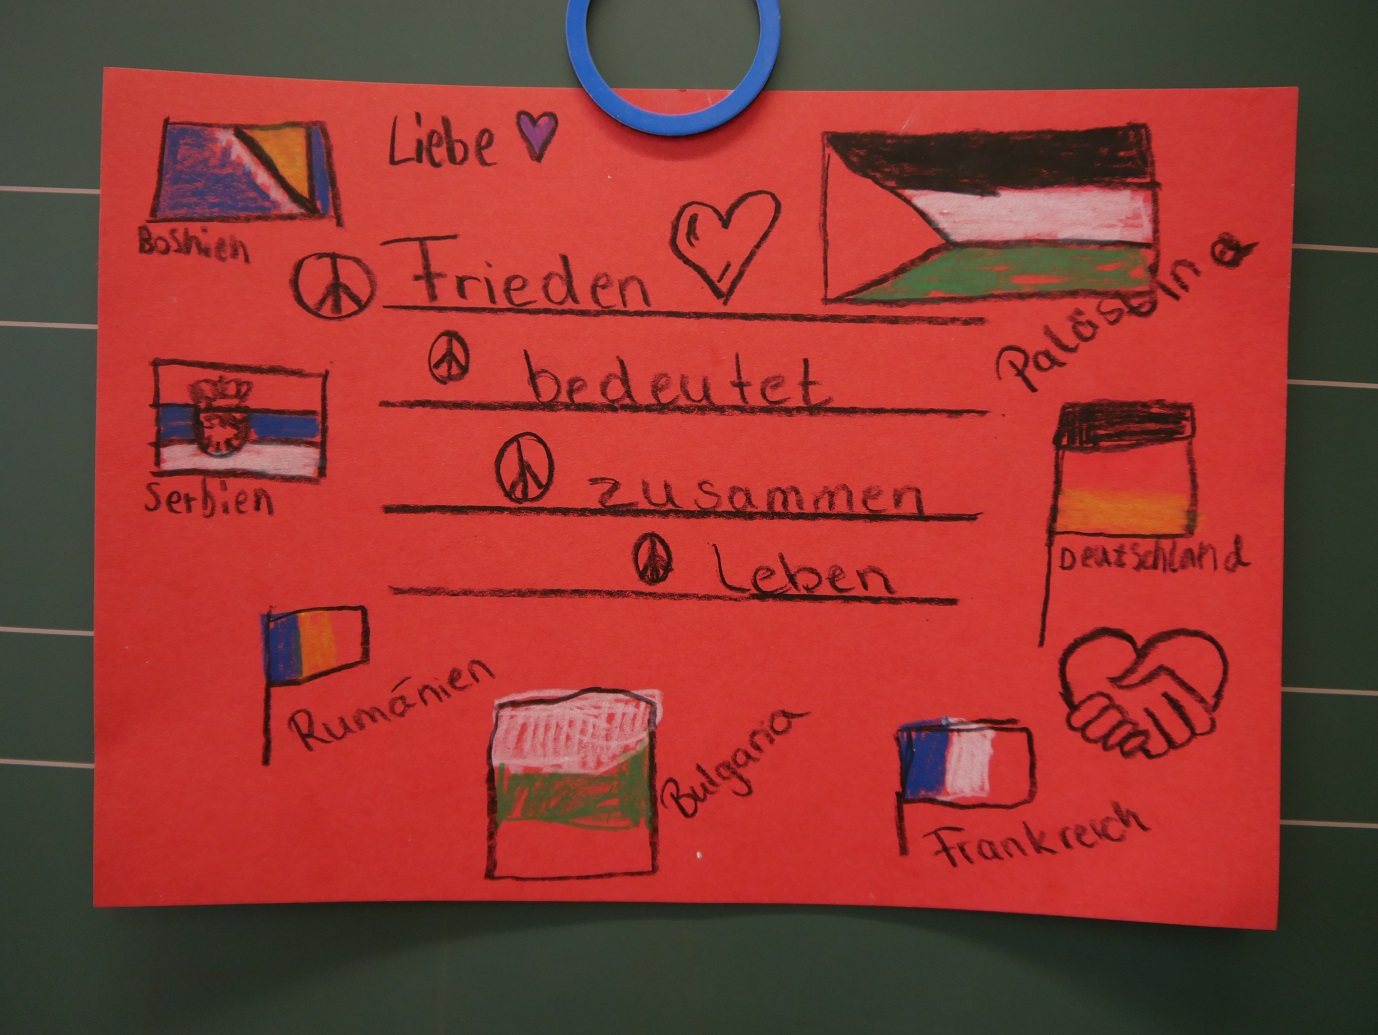 Liebe
Boshien
Frieden
Palästina
bedeutet
Serbien
zusammen
Deutschland
Leben
Rumänien
Bulgaria
Frankreich